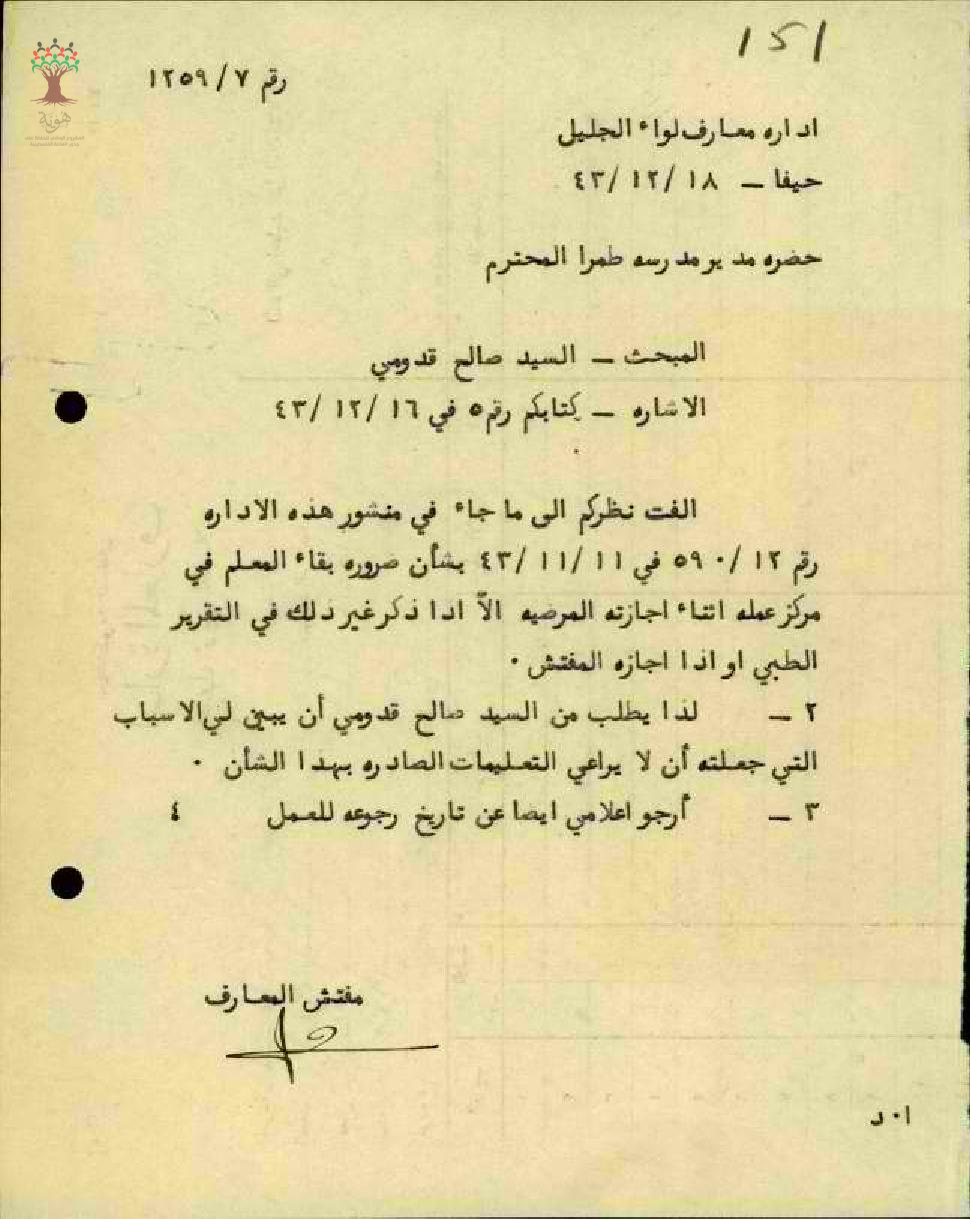 151
رقم ٧/ ١٢٥٩
اداره معارف لواء الجليل
حيفا – ١٨/ ١٢/ ٤٣
حضره مدير مدرسه طمرا المحترم
المبحث – السيد صالح قدومي
الاشاره – كتابكم رقم ٥ في ١٦/ ١٢/ ٤٣
الفت نظركم الى ما جاء في منشور هذه الاداره
رقم ١٢/ ٥٩٠ في ١١/ ١١/ ٤٣ بشأن ضروره بقاء المعلم في
مركز عمله اثناء اجازته المرضيه الاّ اذا ذكر غير ذلك في التقرير
الطبي او اذا اجازه المفتش ٠
٢ – لذا يطلب من السيد صالح قدومي أن يبين لي الاسباب
التي جعلته أن لا يراعي التعليمات الصادره بهذا الشأن ٠
٣ – أرجو اعلامي ايضا عن تاريخ رجوعه للعمل ٤
مفتش المعارف
ا٠د
هوية